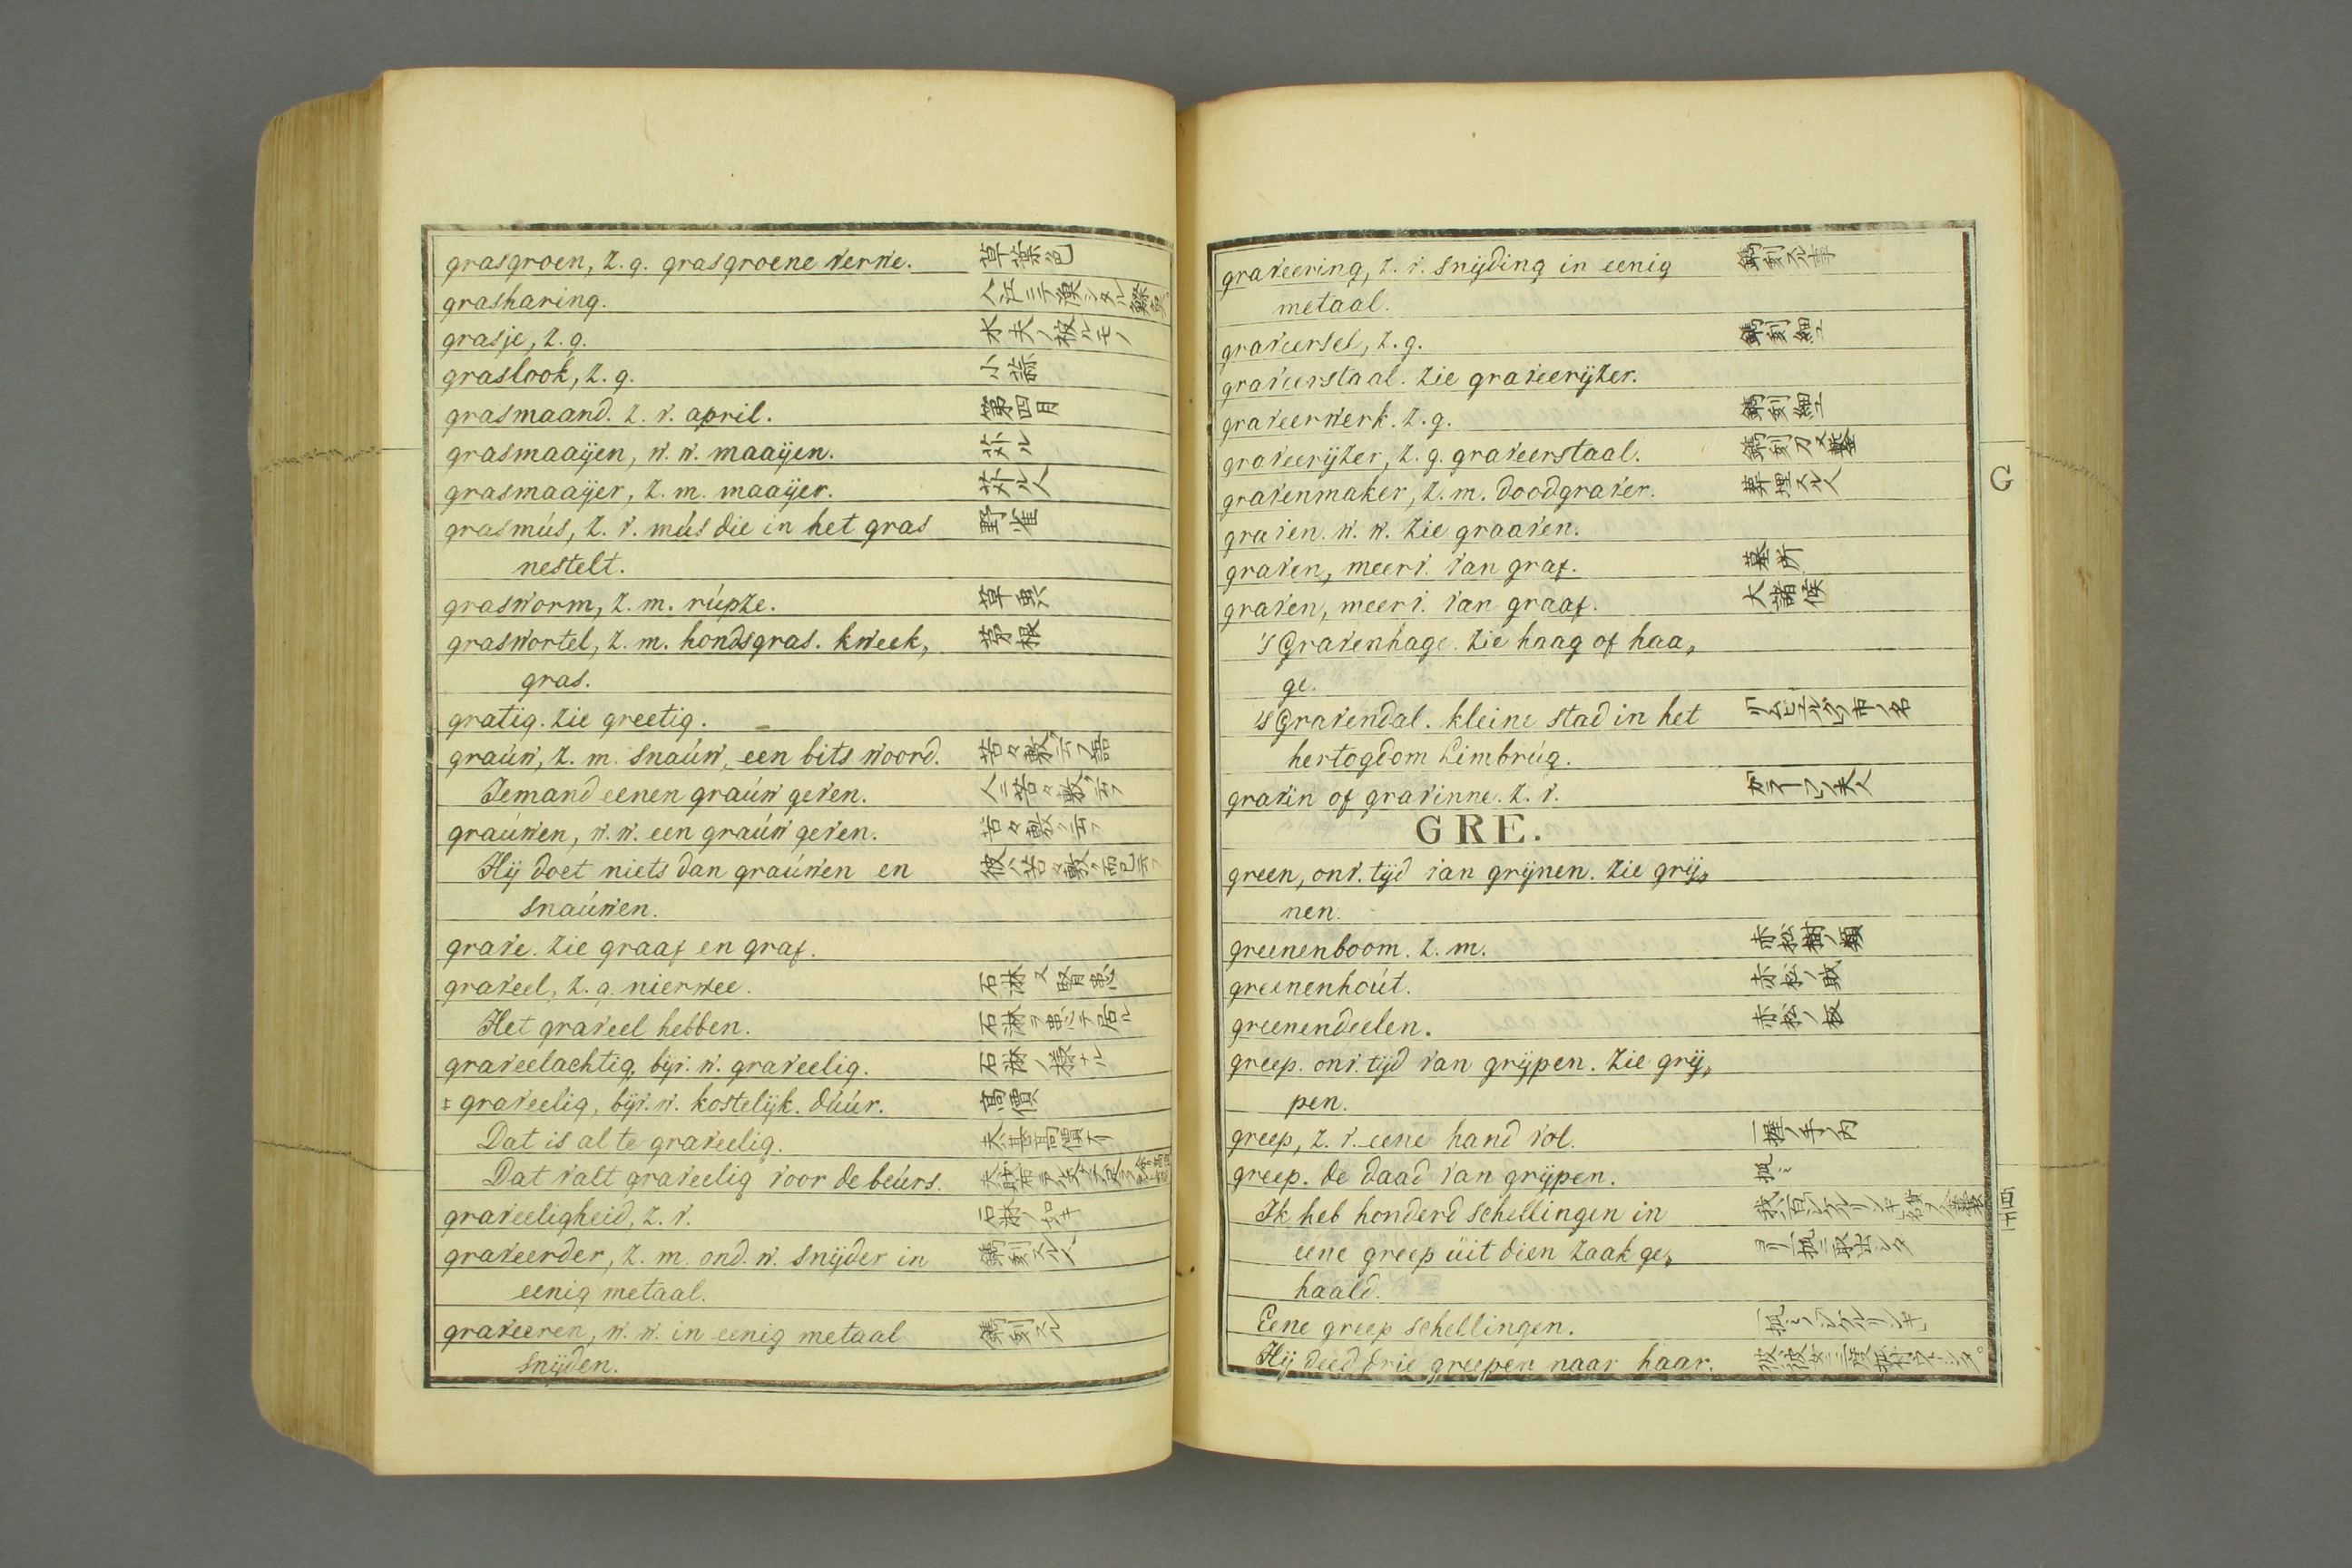 grasgroen, z. g. grasgroene verwe. 草葉色
grasharing. 入江ニテ漁シタル
grasje, z. g. 水夫ノ被ルモノ
graslook, z. g. 小蒜
grasmaand. z. v. april. 第四月
grasmaaijen, w. w. maaijen. 苅ル
grasmaaijer, z. m. maaijer. 苅ル人
grasmús, z. v. mús die in het gras 野雀
nestelt.
grasworm, z. m. rúpze. 草
graswortel, z. m. hondsgras. kweek, 茅根
gras.
gratig. zie greetig.
graúw, z. m. snaúw, een bits woord. 苦々敷云フ語
Iemand eenen graúw geven. 人ニ苦々敷云フ
graúwen, w. w. een graúw geven. 苦々敷云フ
Hij doet niets dan graúwen en 彼ハ苦々敷而已云フ
snaúwen.
grave. zie graaf en graf.
graveel, z. g. nierwee. 石淋 又腎患
Het graveel hebben. 石淋ヲ患テ居ル
graveelachtig, bijv. w. graveelig. 石淋ノ様ナル
‡ graveelig, bijv. w. kostelijk. dúúr. 高價
Dat is al te graveelig. 夫甚高價ナリ
Dat valt graveelig voor de beúrs.
graveeligheid, z. v. 石淋ノ如キ
graveerder, z. m. ond. w. snijder in 鐫刻スル人
eenig metaal.
graveeren, w. w. in eenig metaal 鐫刻スル
snijden.
graveering, z. v. snijding in eenig 鐫刻スル事
metaal.
graveersel, z. g. 鐫刻細工
graveerstaal. zie graveerijzer.
graveerwerk. z. g. 鐫刻細工
graveerijzer, z. g. graveerstaal. 鐫刻刀 又鏨
gravenmaker, z. m. doodgraver. 葬埋スル人
graven. w. w. zie graaven.
graven, meerv. van graf. 墓所
graven, meerv. van graaf. 大諸侯
's Gravenhage. zie haag of haa„
ge.
's Gravendal. kleine stad in het
hertogdom Limbrúg.
gravin of gravinne. z. v.
GRE.
green, onv. tijd van grijnen. zie grij„
nen.
greenenboom. z. m. 赤松樹ノ類
greenenhoút. 赤松ノ
greenendeelen. 赤松ノ板
greep. onv. tijd van grijpen. zie grij„
pen.
greep, z. v. eene hand vol. 一握ノ手ノ内
greep. de daad van grijpen.
Ik heb honderd schellingen in
eene greep uit dien zaak ge„
haald.
Eene greep schellingen.
Hij deed drie greepen naar haar.
G